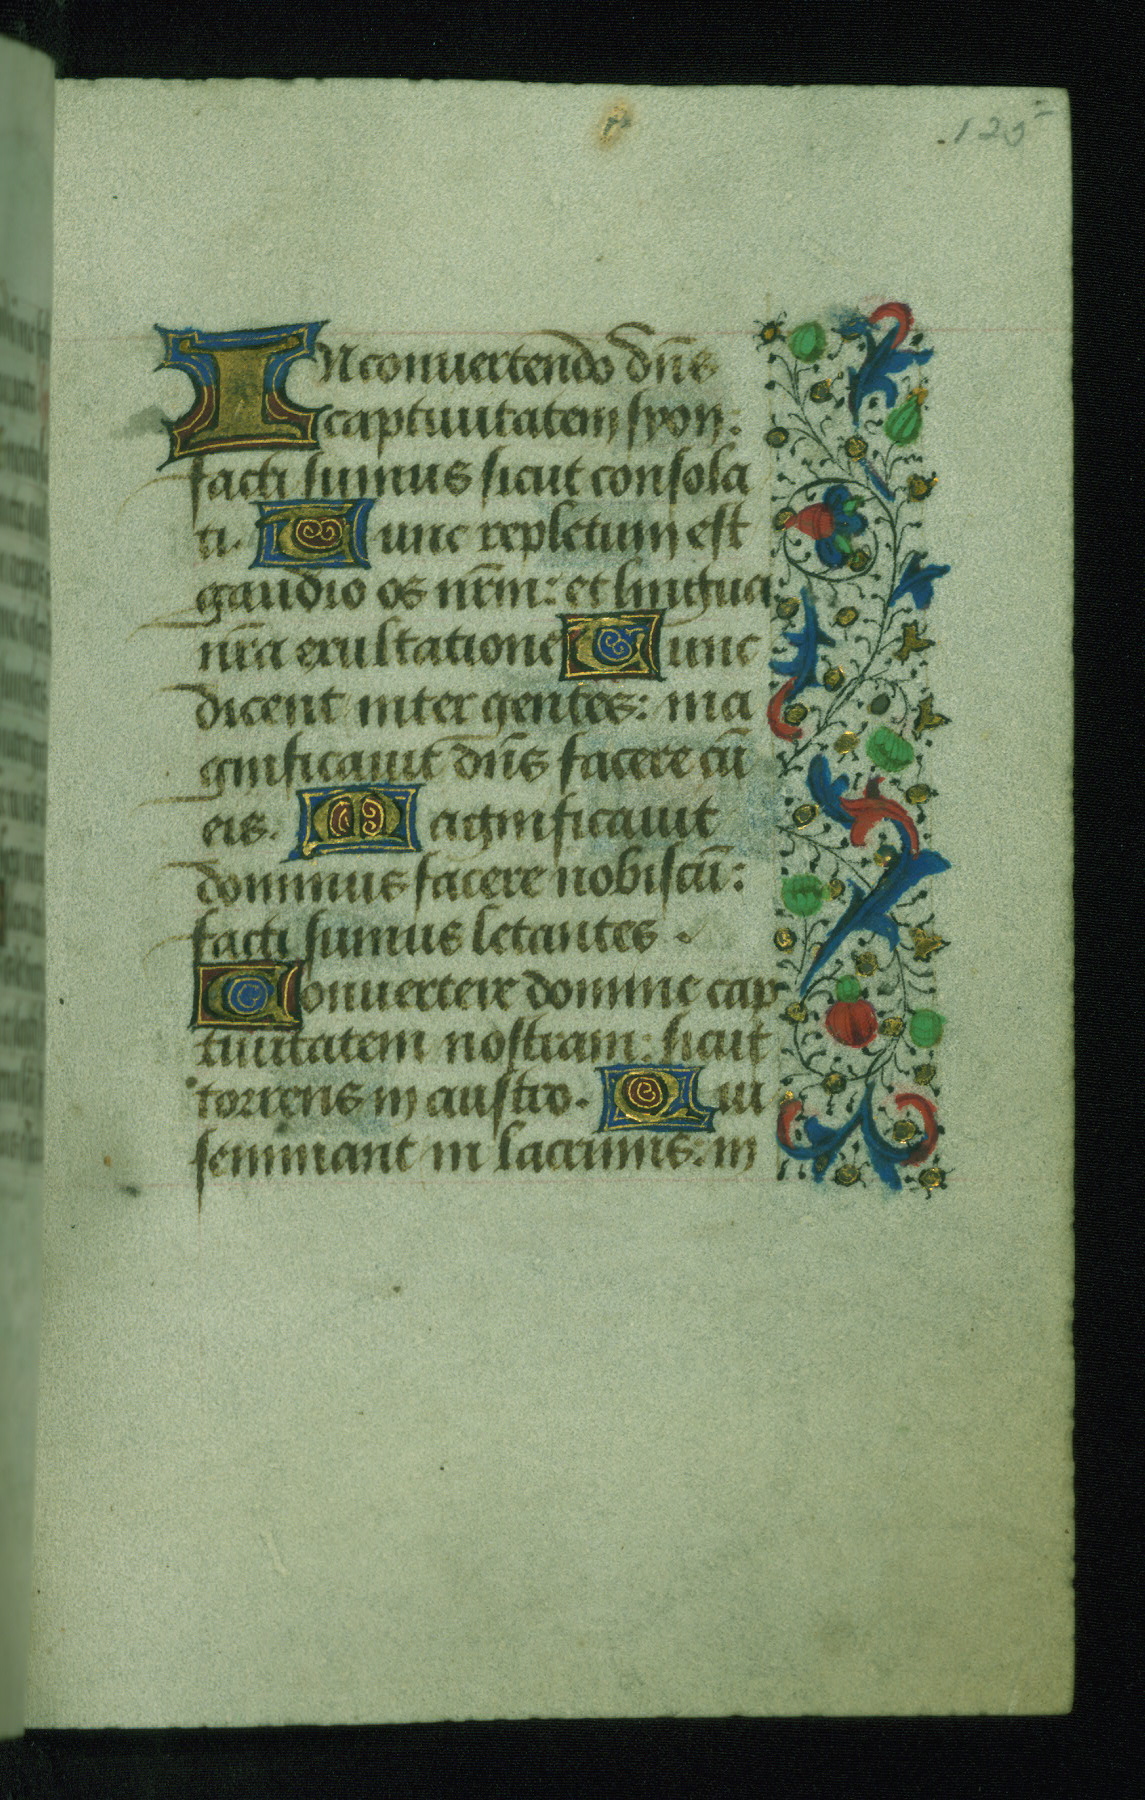 125
In conuertendo dn̄s
captiuitatem syon:
facti sumus sicut consola
ti. Tunc repletum est
gaudio os nr̄m: et lingua
nr̄a exultatione Tunc
dicent inter gentes: ma
gnificauit dn̄s facere cū
eis. Magnificauit
dominus facere nobiscū:
facti sumus letantes.
Conuertere domine cap
tiuitatem nostram: sicut
torrens in austro. Qui
seminant in lacrimis: in